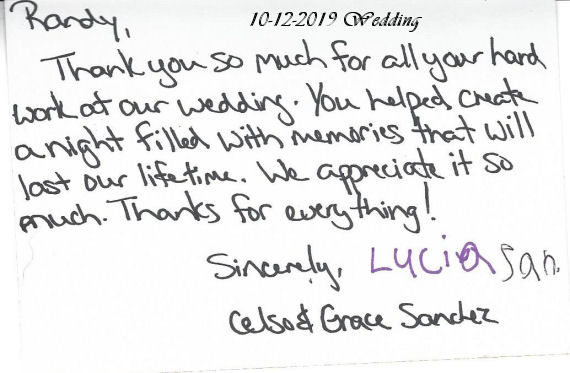 10-12-2019 Wedding
Randy,
Thank you so much for all your hard
work at our wedding. You helped create
a night filled with memories that will
last our lifetime. We appreciate it so
much. Thanks for everything!
Sincerely, Lucia San.
Celso & Grace Sanchez